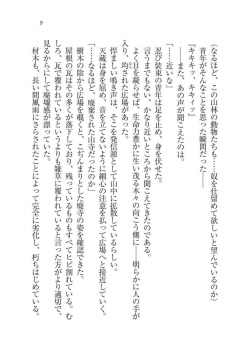 9
「なるほど、この山林の動物たちも……奴を仕留めて欲しいと望んでいるのか」
青年がそんなことを思った瞬間だった――
「キキキッ、キキィッ」
……また、あの声が聞こえたのは。
「……近いな」
忍び装束の青年は足を止め、身を伏せた。
言うまでもない、かなり近いところから聞こえてきたのである。
よく目を凝らせば、生命力豊かに生い茂る木々の向こう側に――明らかに人の手が
入り、均された広場があった。
甲高い鳴き声は、そこを発信源として山中に拡散しているらしい。
天蔵は身を屈め、音を立てないように細心の注意を払って広場へと接近していく。
「……なるほど、廃棄された山寺だったのか」
樹木の陰から広場を覗くと、こぢんまりとした廃寺の姿を確認できた。
屋根の瓦はその多くが落下しており、残っているものもすべてヒビ割れている。む
しろ、瓦で覆われているよりも雑草に覆われていると言った方がより適切で、
見るからにして廃墟感が漂っていた。
材木も、長い間風雨にさらされたことによって完全に劣化し、朽ちはじめている。